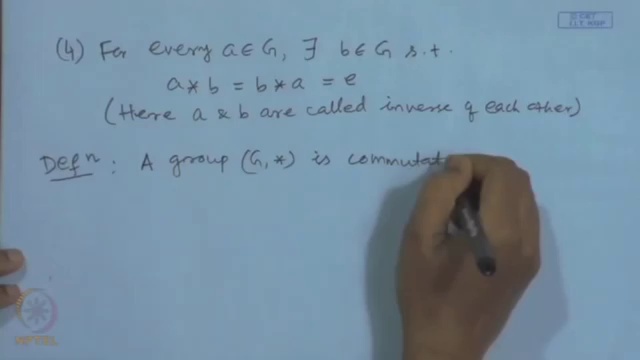 (4) For every a ∈ G, ∃ b ∈ G s.t.
a * b = b * a = e
(Here a & b are called inverse of each other)
Defⁿ : A group (G, *) is commutat
NPTEL